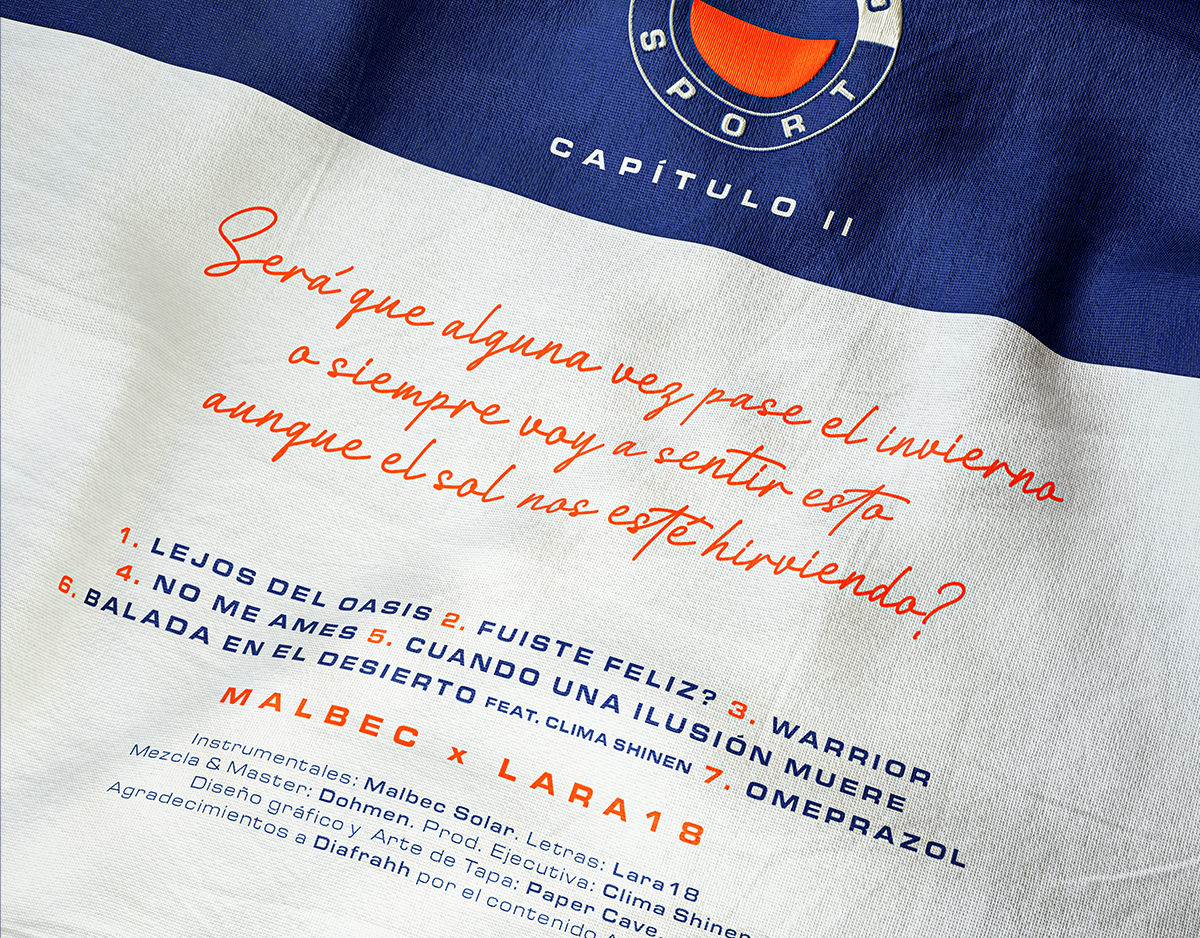 SPORT
CAPÍTULO II
Será que alguna vez pase el invierno
o siempre voy a sentir esto
aunque el sol nos esté hirviendo?
1. LEJOS DEL OASIS 2. FUISTE FELIZ? 3. WARRIOR
4. NO ME AMES 5. CUANDO UNA ILUSIÓN MUERE
6. BALADA EN EL DESIERTO FEAT. CLIMA SHINEN 7. OMEPRAZOL
MALBEC x LARA18
Instrumentales: Malbec Solar. Letras: Lara18
Mezcla & Master: Dohmen. Prod. Ejecutiva: Clima Shinen
Diseño gráfico y Arte de Tapa: Paper Cave.
Agradecimientos a Diafrahh por el contenido